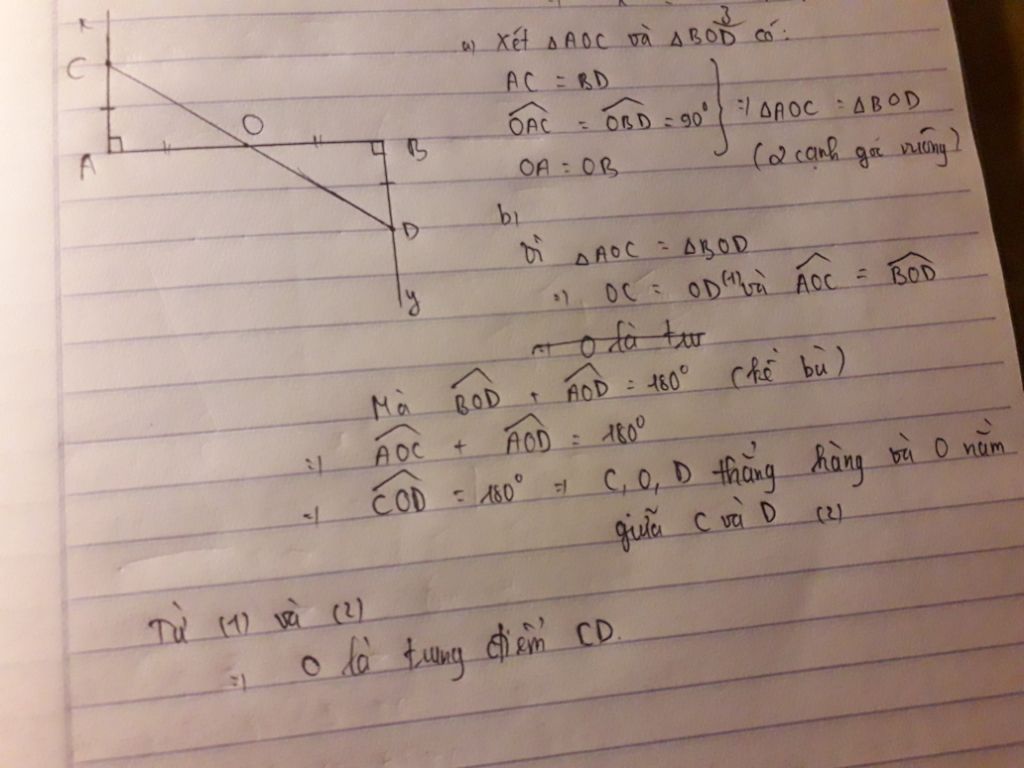 x
C
O
A
B
D
y
a) Xét ΔAOC và ΔBOD có:
AC = BD
\widehat{OAC} = \widehat{OBD} = 90°
OA = OB
=) ΔAOC = ΔBOD
(2 cạnh góc vuông)
b)
Vì ΔAOC = ΔBOD
=) OC = OD (1) và \widehat{AOC} = \widehat{BOD}
=) O là tru
Mà \widehat{BOD} + \widehat{AOD} = 180° (kề bù)
=) \widehat{AOC} + \widehat{AOD} = 180°
=) \widehat{COD} = 180° =) C, O, D thẳng hàng và O nằm
giữa C và D (2)
Từ (1) và (2)
=) O là trung điểm CD.